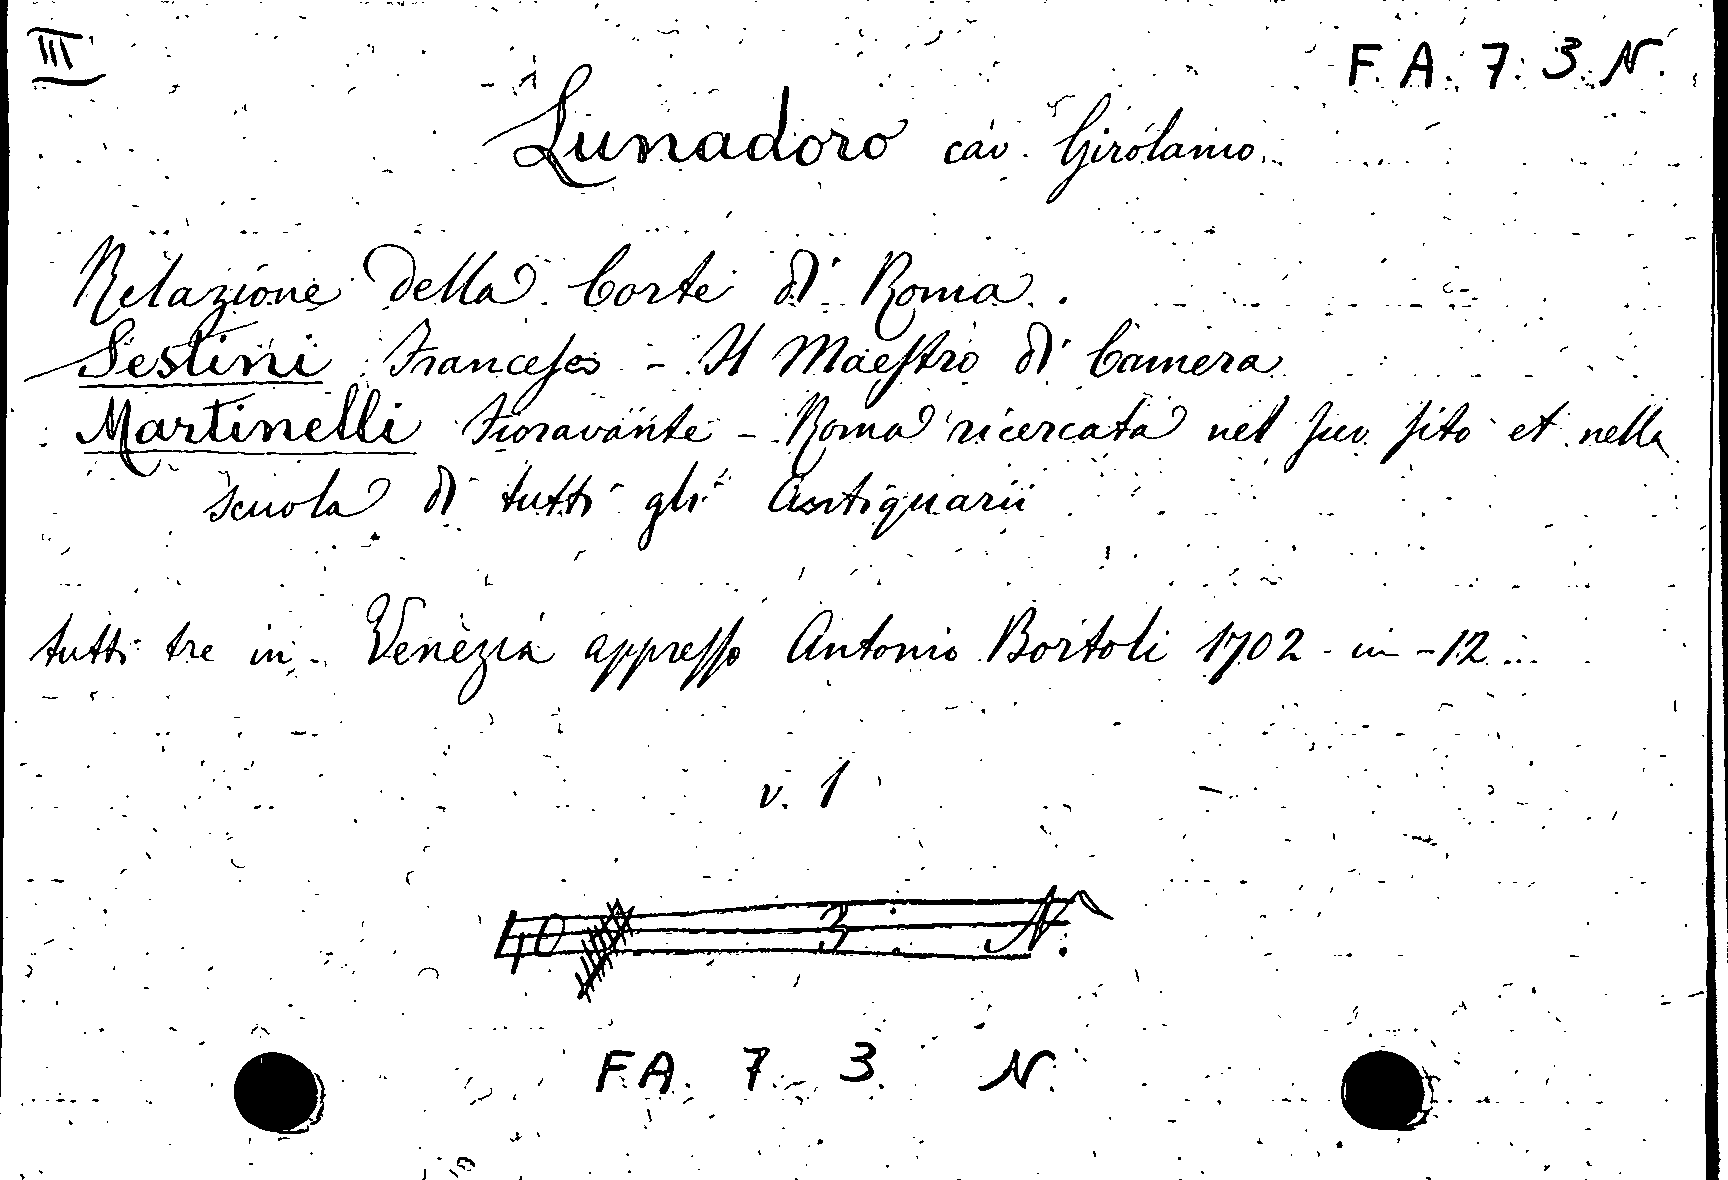 III
F. A. 7. 3. N.
Lunadoro cav. Girolamo
Relazione della Corte di Roma.
Sestini Francesco - Il Maestro di Camera
Martinelli Fioravante - Roma ricercata nel suo sito et nella
scuola di tutti gli Antiquarii
tutti tre in Venezia appresso Antonio Bortoli 1702 in-12
v. 1
40 3. N.
F.A. 7. 3. N.